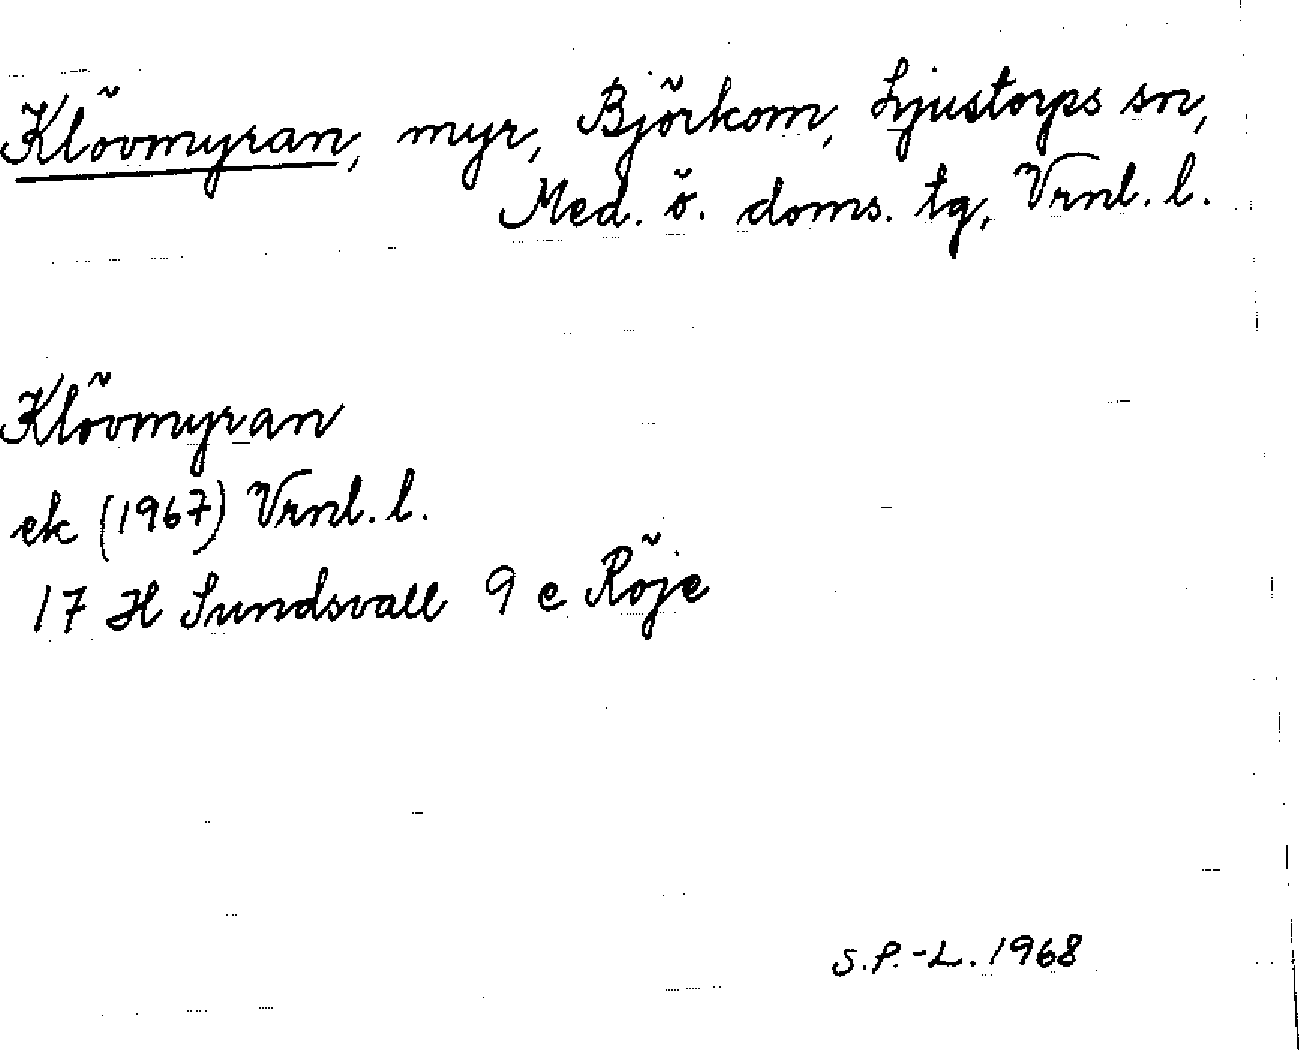 Klövmyran, myr, Björkom, Ljustorps sn,
Med. ö. doms. tg, Vrnl. l.
Klövmyran
ek (1967) Vrnl. l.
17 H Sundsvall 9 e Röje
S.P.-L. 1968